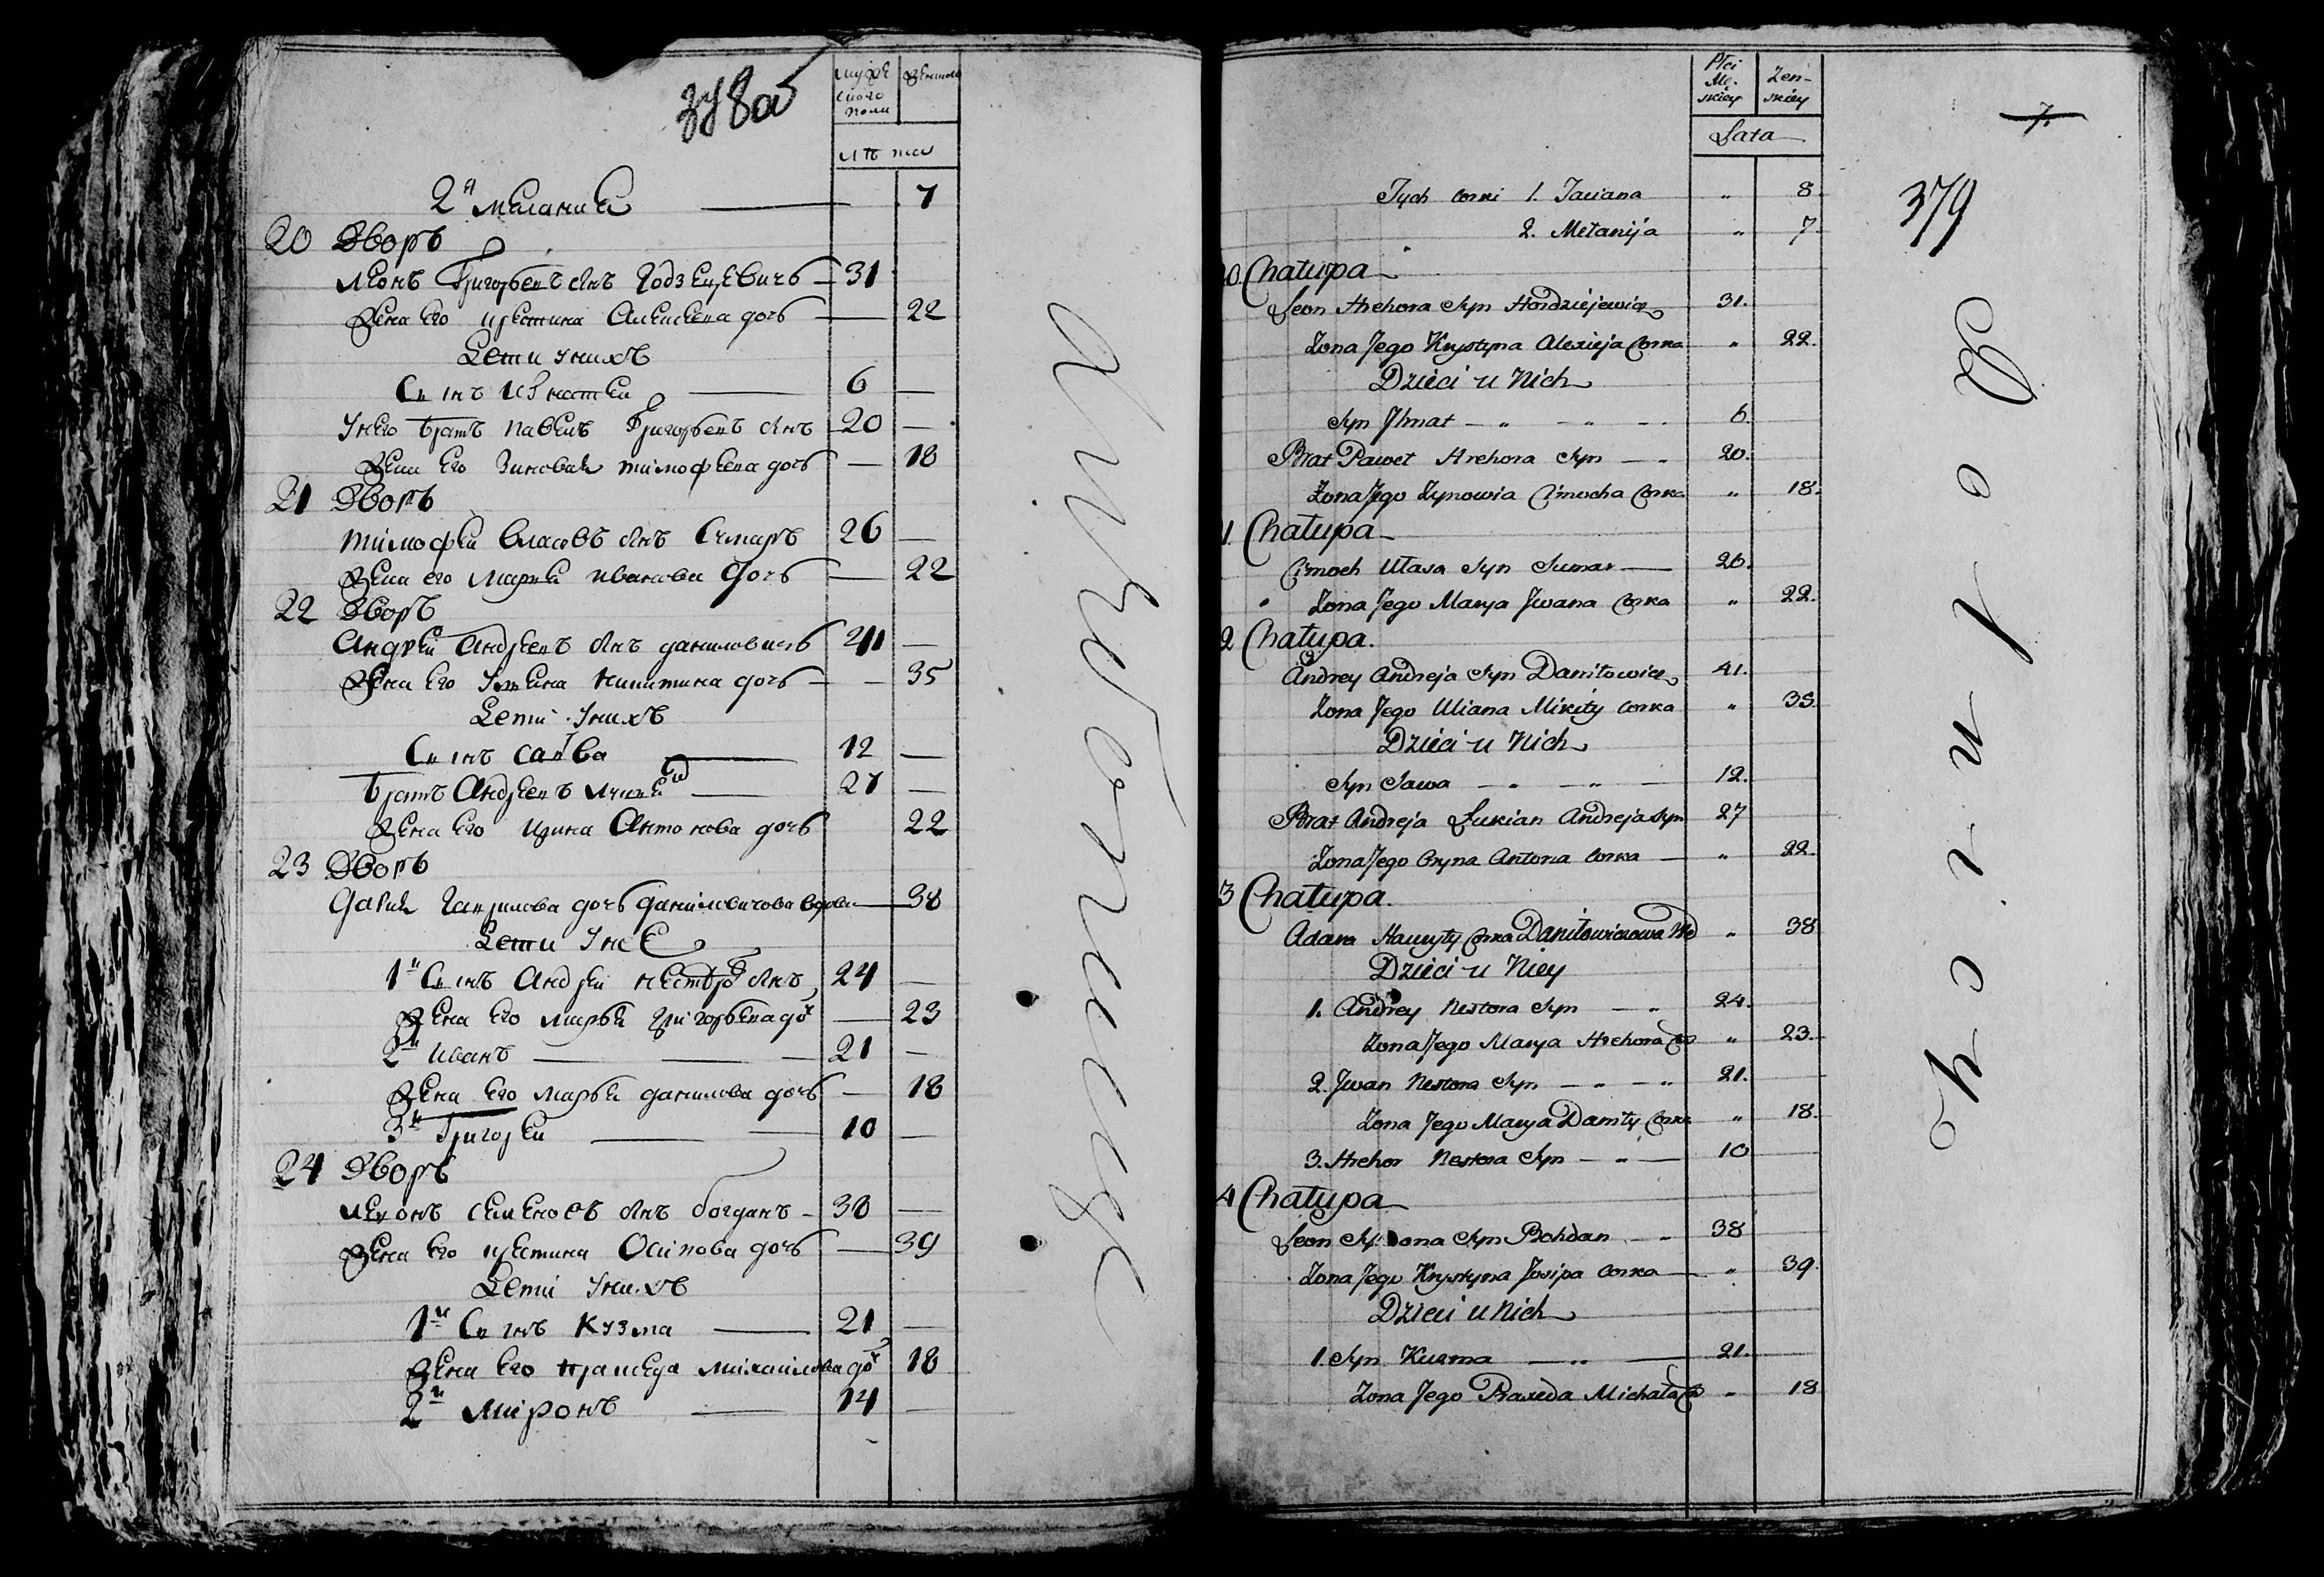 378об
мужеского полу
женска
лѣта
2я Меланиѧ 7
20 Дворъ
Леонъ Григорьевъ сынъ Годзеевичъ 31
Жена его Кристина Алексеева дочь 22
Дети у нихъ
Сынъ Игнатей 6
У него братъ Павелъ Григорьевъ сынъ 20
Жена его Зиновия Тимофеева дочь 18
21 Дворъ
Тимофей Власовъ сынъ Сумаръ 26
Жена его Мариѧ Иванова дочь 22
22 Дворъ
Андрей Андреевъ сынъ Даниловичъ 41
Жена его Ульяна Никитина дочь 35
Дети у нихъ
Сынъ Савва 12
Братъ Андреевъ 27
Жена его Ирина Антонова дочь 22
23 Дворъ
Гаврилова дочь Даниловичова вдова 38
Дети у нее
1й Сынъ Андрей Несторовъ сынъ 24
Жена его Марья Григорьева до 23
2й Иванъ 21
Жена его Марья Данилова дочь 18
3й Григорей 10
24 Дворъ
Леонъ Семеновъ сынъ Богданъ 38
Жена его Кристина Осипова дочь 39
Дети у нихъ
1й Сынъ Кузма 21
Жена его Праседа Михайлова до 18
2й Миронъ 14
Płci Męskiey
Żenskiey
Lata
7.
379
Tych corki 1. Taciana " 8.
2. Mełanija " 7.
0. Chałupa
Leon Hrehora Syn Hordziejewicz 31.
Żona Jego Krystyna Alexieja Corka " 22.
Dzieci u Nich
Syn Jhnat 6.
Brat Paweł Hrehora Syn 20.
Żona Jego Zynowia Cimocha Corka " 18.
1. Chałupa
Cimoch Ułasa Syn Sumar 26.
Żona Jego Marya Jwana Corka " 22.
2 Chałupa.
Andrey Andreja Syn Daniłowicz 41.
Żona Jego Uliana Mikity Corka " 35.
Dzieci u Nich
Syn Sawa 12.
Brat Andreja Łukian Andreja Syn 27
Żona Jego Oryna Antona Corka " 22.
3 Chałupa.
Hauryły Corka Daniłowiczowa Wd " 38
Dzieci u Niey
1. Andrey Nestora Syn 24.
Żona Jego Marya Hrehora Co " 23.
2. Jwan Nestora Syn 21.
Żona Jego Marya Daniły Corka " 18.
3. Hrehor Nestora Syn 10
4 Chałupa
Leon Syn Bohdan 38
Żona Jego Krystyna Josipa Corka " 39.
Dzieci u Nich
1. Syn Kuzma 21.
Żona Jego Praxeda Michała Co " 18